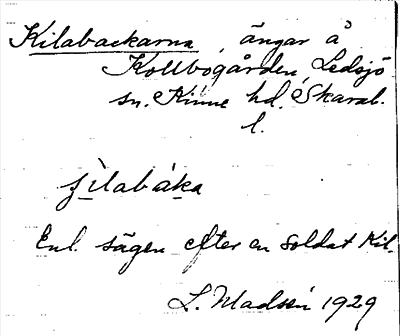 Kilabackarna, ängar å
Kollbogården, Ledsjö
sn. Kinne hd, Skarab.
l.
ʃìlabáka
Enl. sägen efter en soldat Kil.
L. Madsén 1929